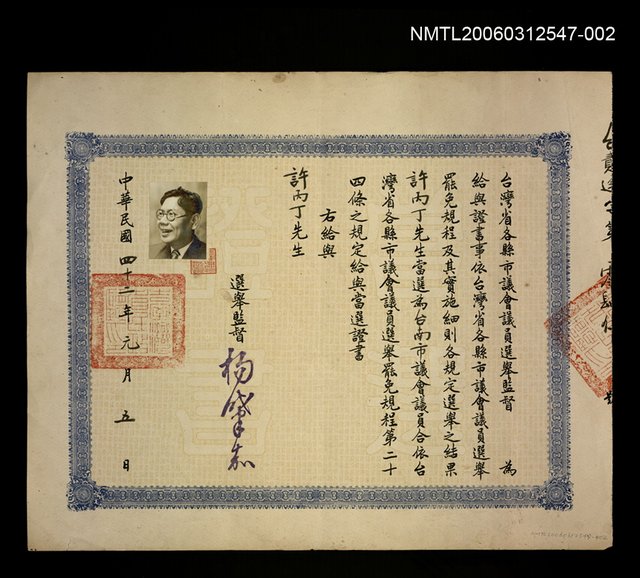 NMTL20060312547-002
台灣省各縣市議會議員選舉監督 為
給與證書事依台灣省各縣市議會議員選舉
罷免規程及其實施細則各規定選舉之結果
許丙丁先生當選為台南市議會議員合依台
灣省各縣市議會議員選舉罷免規程第二十
四條之規定給與當選證書
右給與
許丙丁先生
選舉監督 楊肇嘉
中華民國四十二年元月五日